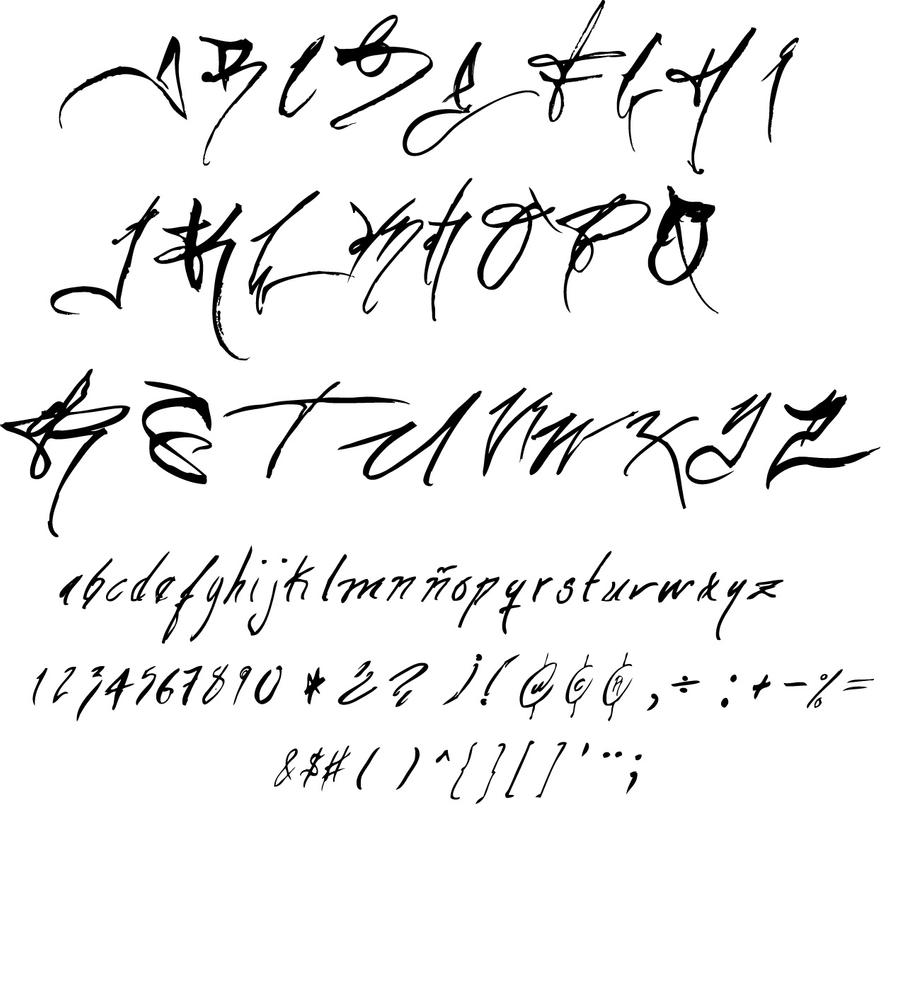 A B C D E F G H I
J K L M N O P Q
R S T U V W X Y Z
a b c d e f g h i j k l m n ñ o p q r s t u v w x y z
1 2 3 4 5 6 7 8 9 0 * ¿ ? ¡ ! @ © ® , ÷ : + - % =
& $ # ( ) ^ { } [ ] ' ¨ ;